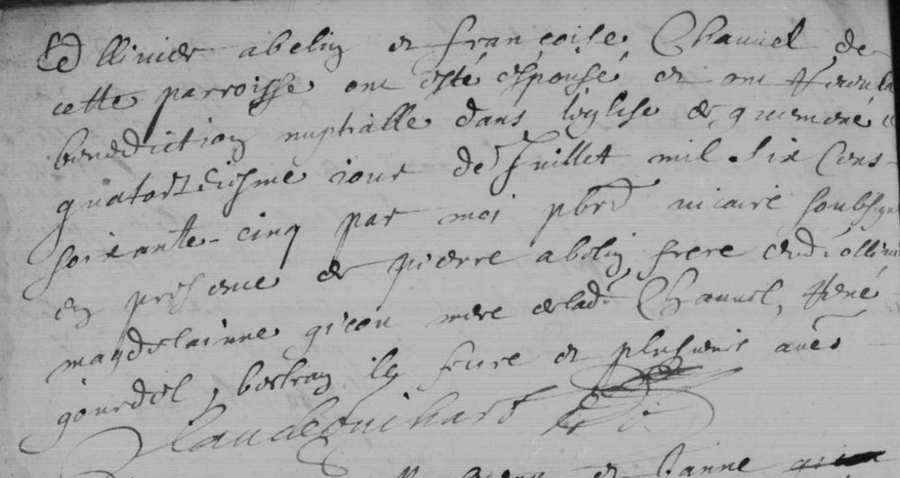 Ollivier abelin et françoise Chauvel de
cette parroisse ont esté espousé et ont
benediction nuptialle dans léglise de guemené
quatorzeiesme jour de Juillet mil six Cens
soixante-cinq par moi pbre vicaire soubsigné
en presence de pierre abelin frere dud ollivier
magdelainne gicou mere de lad Chauvel, René
gourdel, bertran le feure et plusieurs aues
Claude Guihart
et Janne